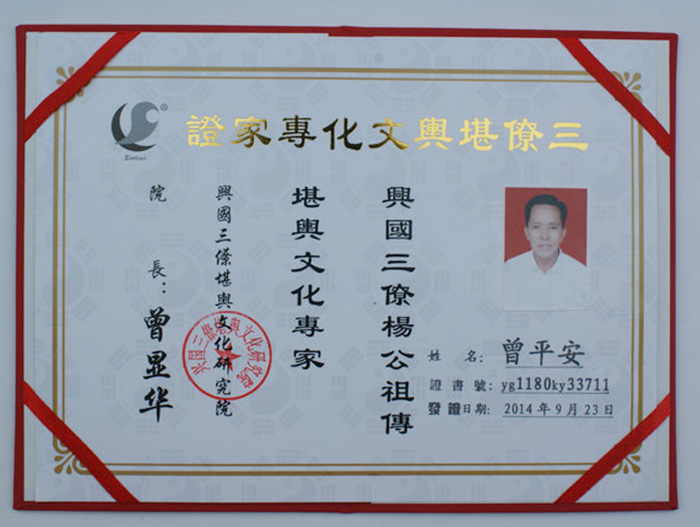 三僚堪輿文化專家證
興國三僚楊公祖傳
堪輿文化專家
興國三僚堪輿文化研究院
院長：曾显华
姓名：曾平安
證書號：yg1180ky33711
發證日期：2014年9月23日
兴国三僚堪舆文化研究院